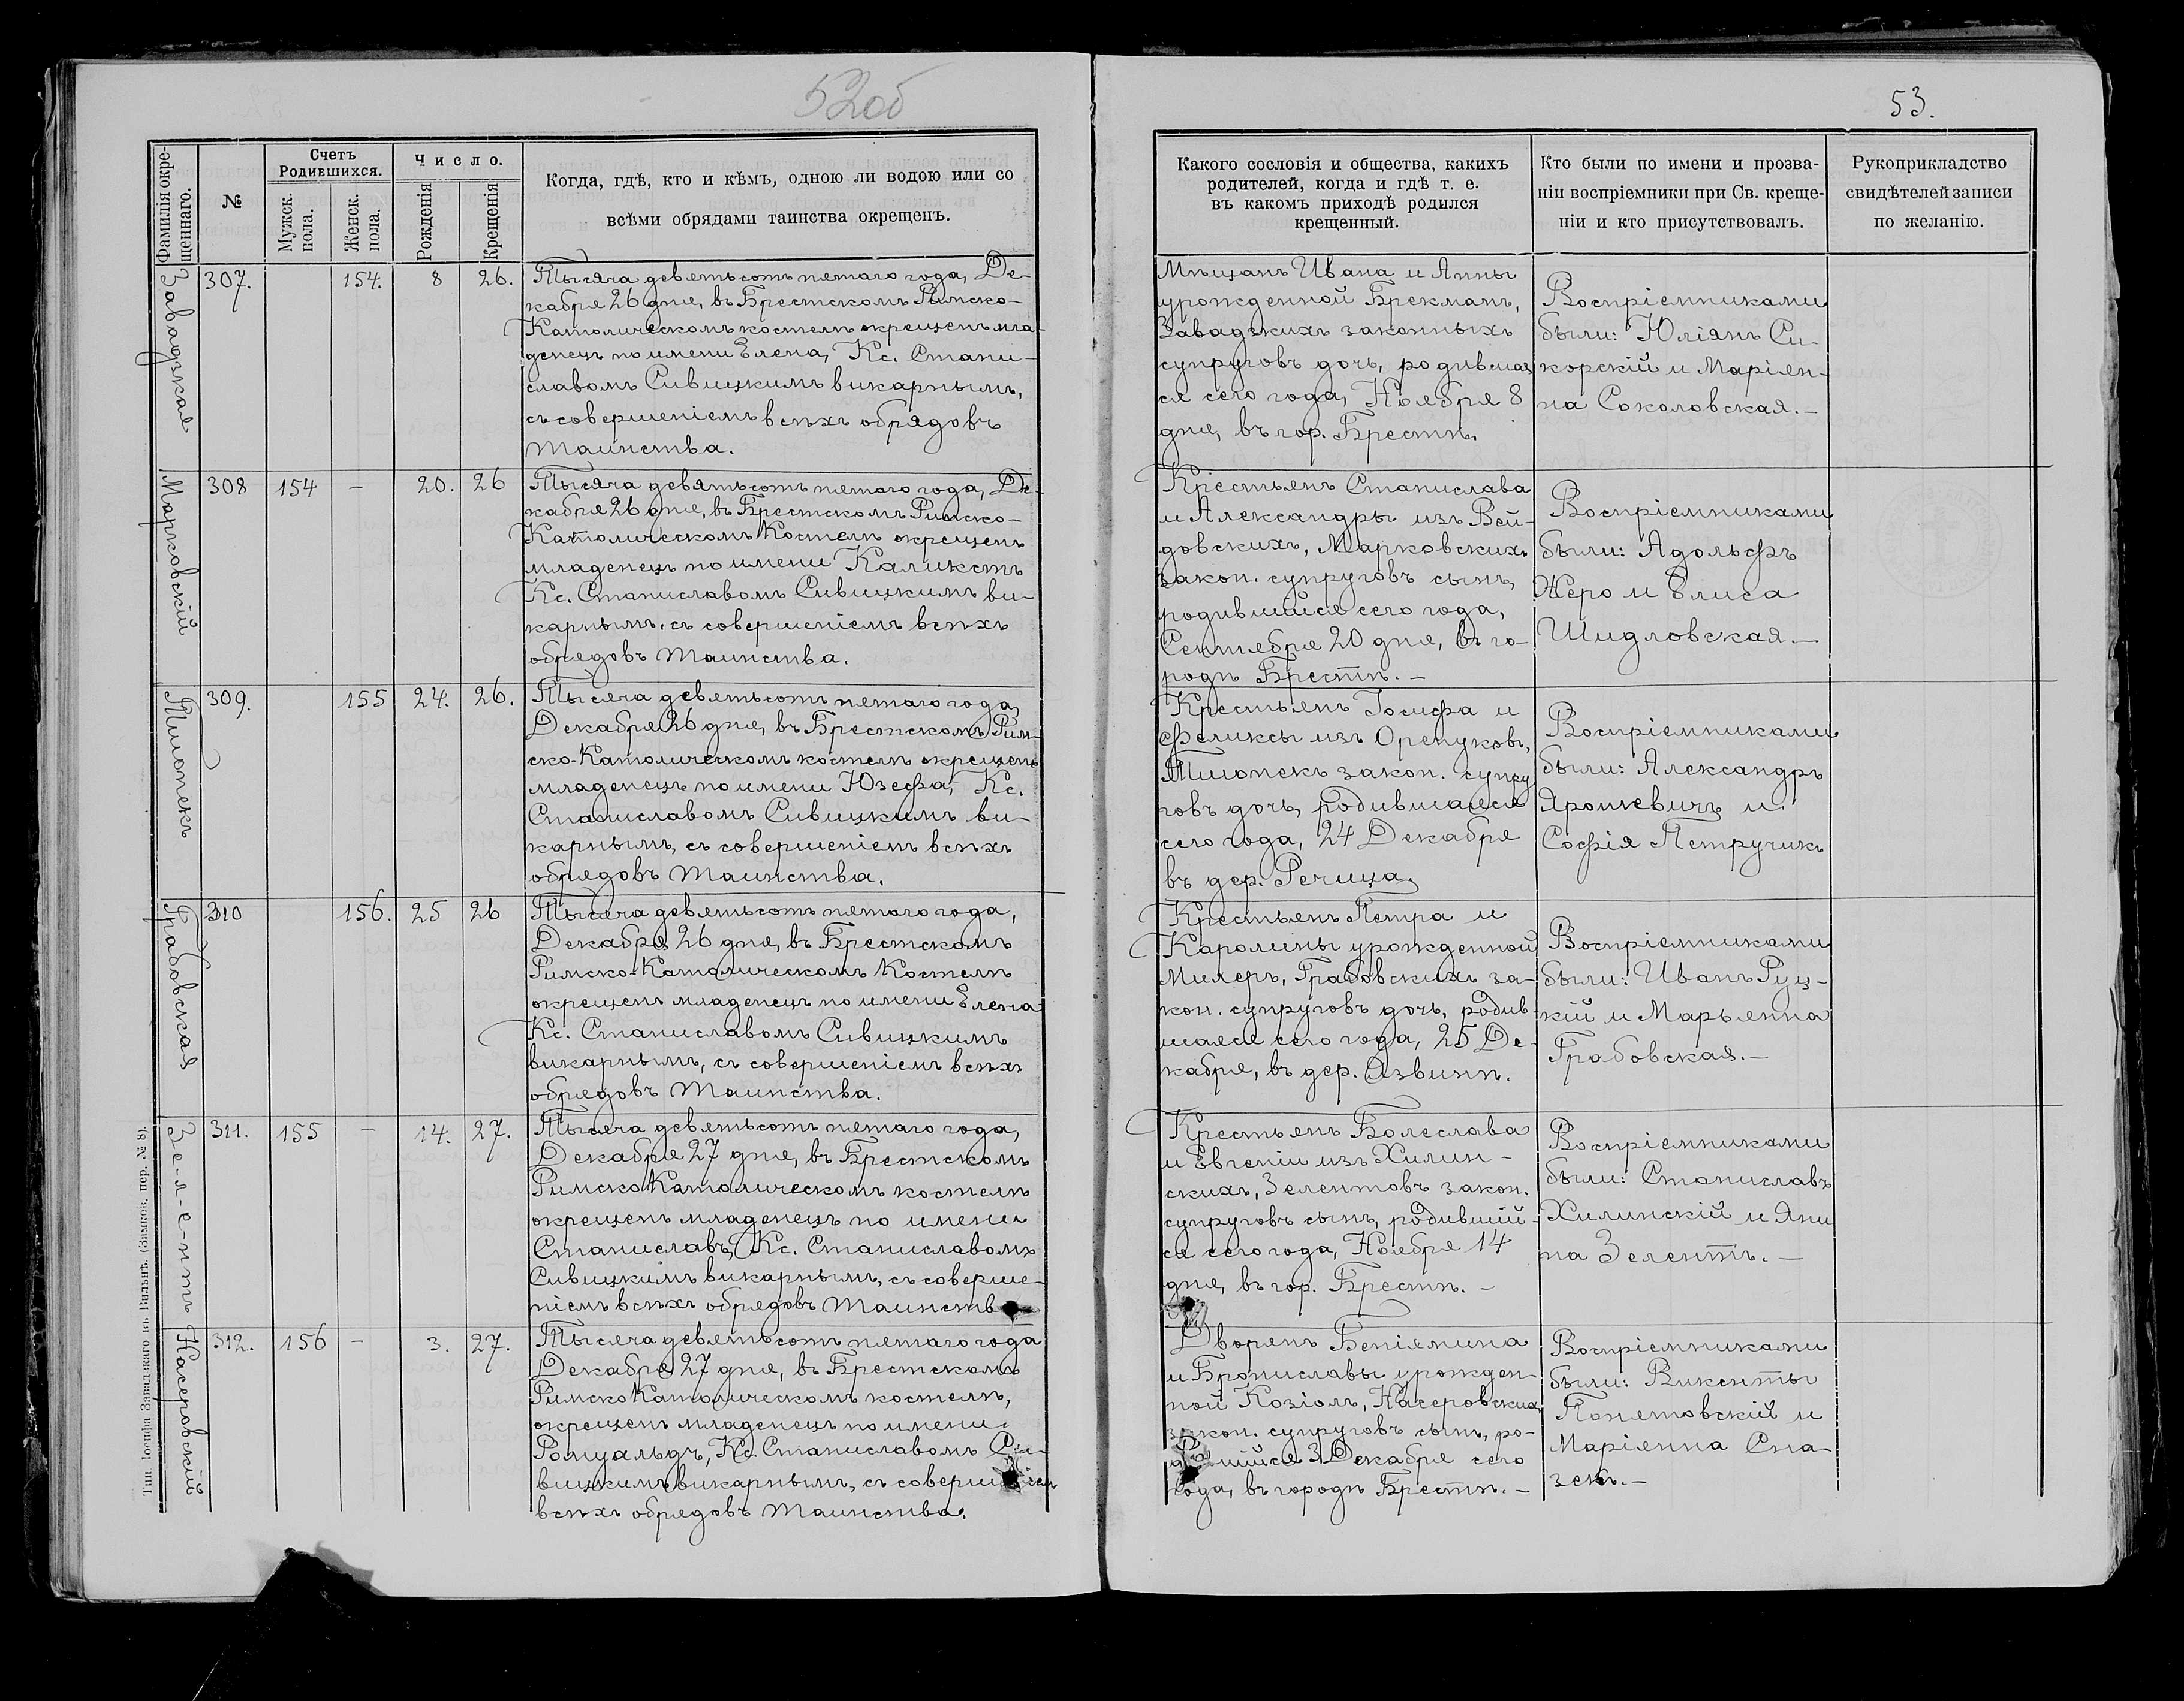 52об
53.
Фамилія окре-
щеннаго.
№
Счетъ
Родившихся.
Мужск.
пола.
Женск.
пола.
Число.
Рожденія
Крещенія
Когда, гдѣ, кто и кѣмъ, одною ли водою или со
всѣми обрядами таинства окрещенъ.
Какого сословія и общества, какихъ
родителей, когда и гдѣ т. е.
въ какомъ приходѣ родился
крещенный.
Кто были по имени и прозва-
ніи воспріемники при Св. креще-
ніи и кто присутствовалъ.
Рукоприкладство
свидѣтелей записи
по желанію.
Завадзкая
307.
154.
8
26.
Тысяча девятьсотъ пятаго года, Де-
кабря 26 дня, въ Брестскомъ Римско-
Католическомъ костелѣ окрещенъ мла-
денецъ по имени Елена, Кс. Стани-
славомъ Сивицкимъ викарнымъ,
съ совершеніемъ всѣхъ обрядовъ
таинства.
Мѣщанъ Ивана и Анны
урожденной Брекманъ,
Завадзкихъ законныхъ
супруговъ дочь, родившая
ся сего года, Ноября 8
дня, въ гор. Брестѣ.
Воспріемниками
были: Юліянъ Си-
корскій и Маріян-
на Соколовская.—
Марковскій
308
154
—
20.
26
Тысяча девятьсотъ пятаго года, Де-
кабря 26 дня, въ Брестскомъ Римско-
Католическомъ Костелѣ окрещенъ
младенецъ по имени Каликстъ
Кс. Станиславомъ Сивицкимъ ви-
карнымъ, съ совершеніемъ всѣхъ
обрядовъ таинства.
Крестьянъ Станислава
и Александры изъ Вей-
довскихъ, Марковскихъ
закон. супруговъ сынъ,
родившійся сего года,
Сентября 20 дня, въ го-
родѣ Брестѣ.—
Воспріемниками
были: Адольфъ
Жеро и Елиса
Шидловская.—
Тшопекъ
309.
155
24.
26.
Тысяча девятьсотъ пятаго года,
Декабря 26 дня, въ Брестскомъ Рим-
ско-Католическомъ костелѣ окрещенъ
младенецъ по имени Юзефа, Кс.
Станиславомъ Сивицкимъ ви-
карнымъ, съ совершеніемъ всѣхъ
обрядовъ таинства.
Крестьянъ Іосифа и
Феликсы изъ Оренуковъ,
Тшопекъ закон. супру
говъ дочь, родившаяся
сего года, 24 Декабря
въ дер. Речица
Воспріемниками
были: Александръ
Ярошевичъ и
Софія Петручикъ
Грабовская
310
156.
25
26
Тысяча девятьсотъ пятаго года,
Декабря 26 дня, въ Брестскомъ
Римско-Католическомъ Костелѣ
окрещенъ младенецъ по имени Елена
Кс. Станиславомъ Сивицкимъ
викарнымъ, съ совершеніемъ всѣхъ
обрядовъ таинства.
Крестьянъ Петра и
Каролины урожденной
Милеръ, Грабовскихъ за-
кон. супруговъ дочь, родив-
шаяся сего года, 25 Де-
кабря, въ дер.Азвинѣ.
Воспріемниками
были: Иванъ Руц-
кій и Марьянна
Грабовская.—
Зе-л-е-нтъ
311.
155
—
14.
27.
Тысяча девятьсотъ пятаго года,
Декабря 27 дня, въ Брестскомъ
Римско Католическомъ костелѣ
окрещенъ младенецъ по имени
Станиславъ, Кс. Станиславомъ
Сивицкимъ викарнымъ, съ соверше-
ніемъ всѣхъ обрядовъ таинств
Крестьянъ Болеслава
и Евгеніи изъ Хилин-
скихъ, Зелентовъ закон.
супруговъ сынъ, родившій-
ся сего года, Ноября 14
дня, въ гор. Брестѣ.—
Воспріемниками
были: Станиславъ
Хилинскій и Яни
на Зелентъ.—
Насеровскій
312.
156
—
3.
27.
Тысяча девятьсотъ пятаго года
Декабря 27 дня, въ Брестскомъ
Римско Католическомъ костелѣ,
окрещенъ младенецъ по имени
Ромуальдъ, Кс. Станиславомъ Си-
вицкимъ викарнымъ, съ соверш іем
всѣхъ обрядовъ таинства.
Дворянъ Беніямина
и Брониславы урожден-
ной Козіолъ, Насеровскихъ
закон. супруговъ сынъ, ро-
шійся 3 Декабря сего
года, въ городѣ Брестѣ.—
Воспріемниками
были: Викенты
Понятовскій и
Маріянна Спа-
зекъ.—
Тип. Іосифа Завадзкаго въ Вильнѣ. (Замков. пер. № 8).